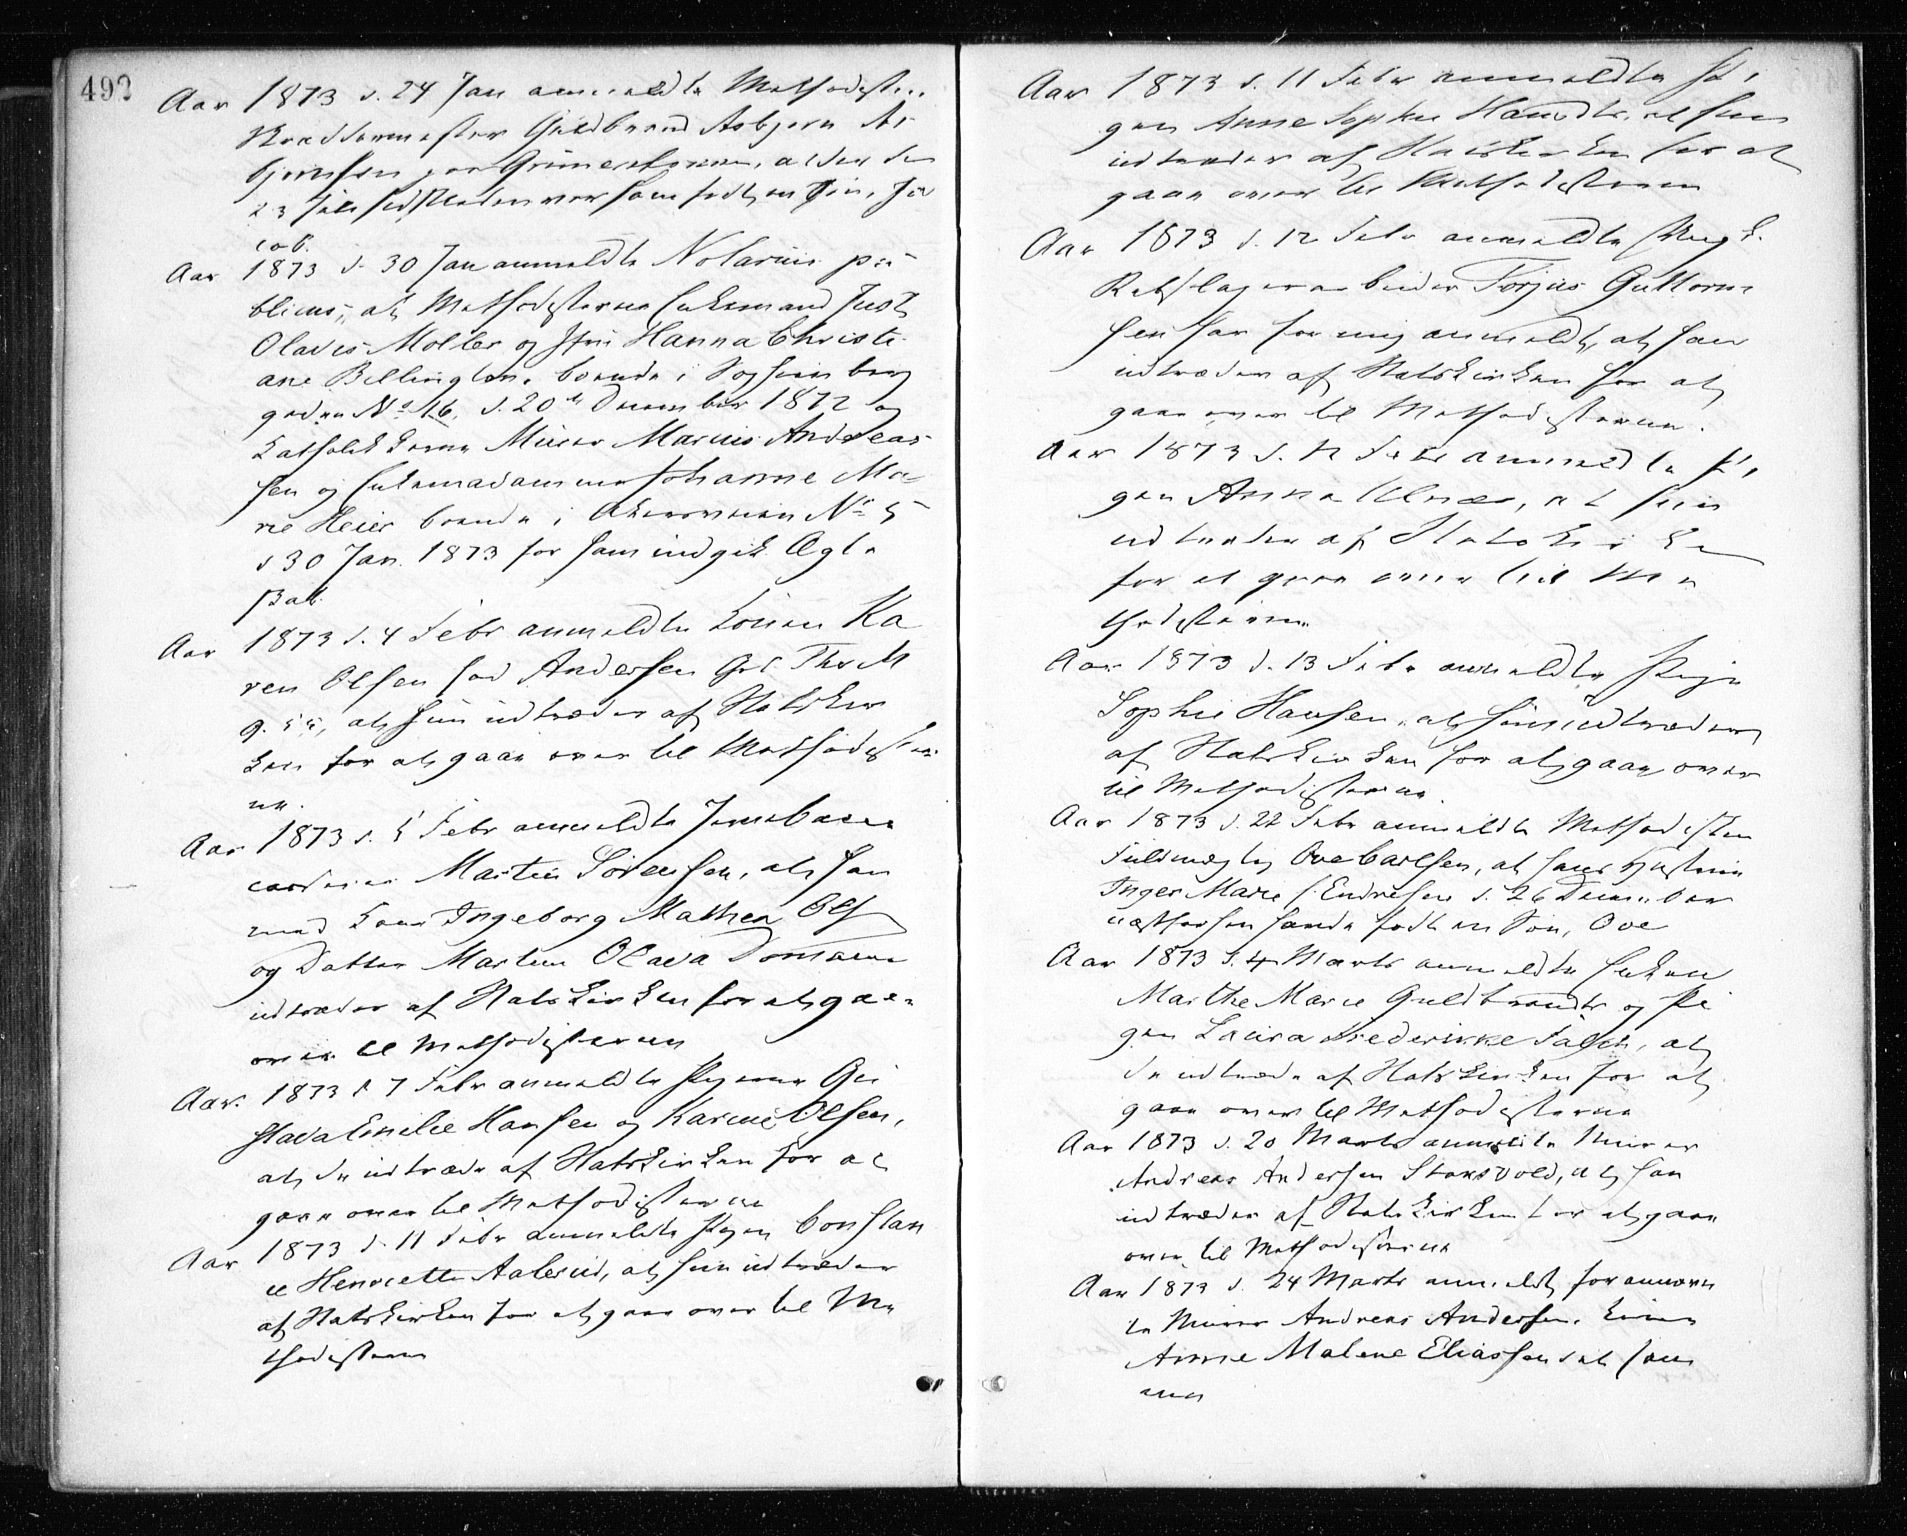 492
Aar 1873 d. 24 Jan anmeldte Methodisten
Skræddermester Guldbrand Asbjørn As
bjørnsen paa Grünerløkken, at den
23 Juli sidstleden var ham født en Søn, Ja
cob.
Aar 1873 d. 30 Jan anmeldte Notarius pu
blicus, at Methodisterne Enkemand Just
Olaves Moller og Frue Hanna Christi
ane Billington, boende i Pogsenberg
gaden No 16, d. 20de December 1872 og
Katholikkerne Murer Marius Andreas
sen og Enkemadamme Johanne Ma
rie Heier boende i Akersveien No 5
d 30 Jan. 1873 for ham indgik Ægte
skab.
Aar 1873 d. 4 Febr anmeldte Konen Ka
ren Olsen fød Andersen Grl Thv M
g. 55, at hun udtræder af Statskir
ken for at gaae over til Methodister
ne.
Aar 1873 d. 5 Febr anmeldte Jernbane
arbeider Martin Sørensen, at han
med Kone Ingeborg Mathea Ols
og Datter Martine Olava Domine
udtræder af Statskirken for at gaae
over til Methodisterne
Aar 1873 d 7 Febr anmeldte Pigerne Gu
stava Emilie Hansen og Karine Olsen,
at de udtræde af Statskirken for at
gaae over til Methodisterne
Aar 1873 d. 11 Febr anmeldte Pigen Constan
ce Henriette Aalerud, at hun udtræder
af Statskirken for at gaae over til Me
thodisterne
Aar 1873 d. 11 Febr anmeldte Pi
gen Anne Sophie Hansdtr, at hun
udtræder af Statskirken for at
gaae over til Methodisterne
Aar 1873 d. 12 Febr anmeldte Ungk.
Rebslagerarbeider Torjus Guttorm
sen har for mig anmeldt, at han
udtræder af Statskirken for at
gaae over til Methodisterne.
Aar 1873 d. 12 Febr anmeldte Pi
gen Anna Ulnæs, at hun
udtræder af Statskirken
for at gaae over til Me
thodisterne
Aar 1873 d. 13 Febr anmeldte Pige
Sophie Hansen, at hun udtræder
af Statskirken for at gaae over
til Methodisterne
Aar 1873 d. 22 Febr anmeldte Methodisten
Fuldmægtig Ove Carlsen, at hans Hustru
Inger Marie f. Endresen d. 26 December
næstforhen havde født en Søn, Ove
Aar 1873 d. 4 Marts anmeldte Enken
Marthe Marie Guldbrandtr og Pi
gen Laura Frederikke Falch, at
de udtræde af Statskirken for at
gaae over til Methodisterne
Aar 1873 d. 20 Marts anmeldte Murer
Andreas Andersen Storsvold, at han
udtræder af Statskirken for at gaae
over til Methodisterne
Aar 1873 d. 24 Marts anmeldte fornævn
te Murer Andreas Andersens Kone
Anne Malene Eliassen det sam
me